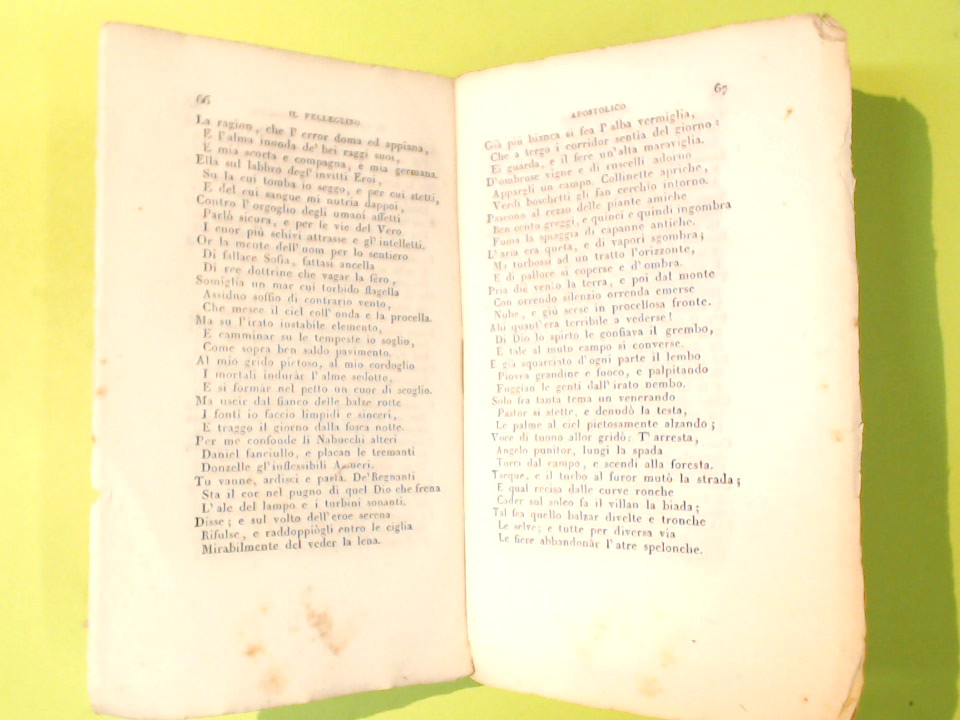 66
IL PELLEGRINO
La ragion, che l' error doma ed appiana,
E l'alma inonda de' bei raggi suoi,
E mia scorta e compagna, e mia germana.
Ella sul labbro degl' invitti Eroi,
Su la cui tomba io seggo, e per cui stetti,
E del cui sangue mi nutria dappoi,
Contro l'orgoglio degli umani affetti
Parlò sicura, e per le vie del Vero
I cuor più schivi attrasse e gl' intelletti.
Or la mente dell' uom per lo sentiero
Di fallace Sofia, fattasi ancella
Di ree dottrine che vagar la fêro,
Somiglia un mar cui torbido flagella
Assiduo soffio di contrario vento,
Che mesce il ciel coll' onda e la procella.
Ma su l'irato instabile elemento,
E camminar su le tempeste io soglio,
Come sopra ben saldo pavimento.
Al mio grido pietoso, al mio cordoglio
I mortali induràr l'alme sedotte,
E si formàr nel petto un cuor di scoglio.
Ma uscir dal fianco delle balze rotte
I fonti io faccio limpidi e sinceri,
E traggo il giorno dalla fosca notte.
Per me confonde li Nabucchi alteri
Daniel fanciullo, e placan le tremanti
Donzelle gl'inflessibili Assueri.
Tu vanne, ardisci e parla. De'Regnanti
Sta il cor nel pugno di quel Dio che frena
L'ale del lampo e i turbini sonanti.
Disse; e sul volto dell'eroe serena
Rifulse, e raddoppiògli entro le ciglia
Mirabilmente del veder la lena.
APOSTOLICO
67
Già più bianca si fea l'alba vermiglia,
Che a tergo i corridor sentia del giorno:
Ei guarda, e il fere un'alta maraviglia.
D'ombrose vigne e di ruscelli adorno
Appargli un campo. Collinette apriche,
Verdi boschetti gli fan cerchio intorno.
Pascono al rezzo delle piante amiche
Ben cento greggi, e quinci e quindi ingombra
Fuma la spiaggia di capanne antiche.
L'aria era queta, e di vapori sgombra;
Ma turbossi ad un tratto l'orizzonte,
E di pallore si coperse e d'ombra.
Pria diè vento la terra, e poi dal monte
Con orrendo silenzio orrenda emerse
Nube, e giù scese in procellosa fronte.
Ahi quant'era terribile a vederse!
Di Dio lo spirto le gonfiava il grembo,
E tale al muto campo si converse.
E già squarciato d'ogni parte il lembo
Piovea grandine e fuoco, e palpitando
Fuggian le genti dall'irato nembo.
Solo fra tanta tema un venerando
Pastor si stette, e denudò la testa,
Le palme al ciel pietosamente alzando;
Voce di tuono allor gridò: T'arresta,
Angelo punitor, lungi la spada
Torci dal campo, e scendi alla foresta.
Tacque, e il turbo al furor mutò la strada;
E qual recisa dalle curve ronche
Cader sul solco fa il villan la biada;
Tal fea quello balzar divelte e tronche
Le selve; e tutte per diversa via
Le fiere abbandonàr l'atre spelonche.